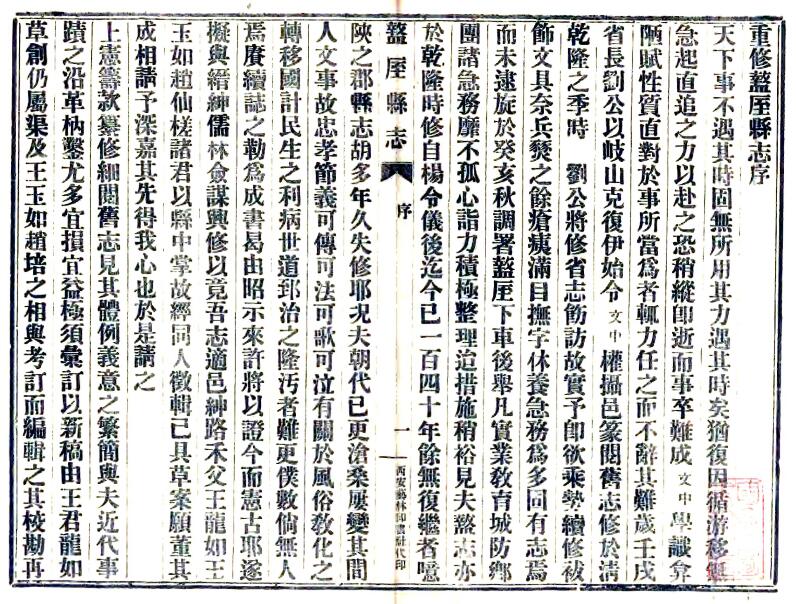 重修盩厔縣志序
天下事不遇其時固無所用其力遇其時矣猶復因循游移無
急起直追之力以赴之恐稍縱卽逝而事卒難成文中學識弇
陋賦性質直對於事所當爲者輒力任之而不辭其難歲壬戌
省長劉公以岐山克復伊始令文中權攝邑篆閱舊志修於清
乾隆之季時 劉公將修省志飭訪故實予卽欲乘勢續修祓
飾文具奈兵燹之餘瘡痍滿目撫字休養急務爲多固有志焉
而未逮旋於癸亥秋調署盩厔下車後舉凡實業敎育城防鄉
團諸急務靡不孤心詣力積極整理迨措施稍裕見夫盩志亦
於乾隆時修自楊令儀後迄今已一百四十年餘無復繼者噫
盩厔縣志 序 一 西安藝林印書社代印
陜之郡縣志胡多年久失修耶況夫朝代已更滄桑屢變其間
人文事故忠孝節義可傳可法可歌可泣有關於風俗敎化之
轉移國計民生之利病世道郅治之隆汚者難更僕數倘無人
焉賡續誌之勒爲成書曷由昭示來許將以證今而憲古耶遂
擬與縉紳儒林僉謀興修以竟吾志適邑紳路禾父王龍如王
玉如趙仙槎諸君以縣中掌故經同人徵輯已具草案願董其
成相請予深嘉其先得我心也於是請之
上憲籌款纂修細閱舊志見其體例義意之繁簡與夫近代事
蹟之沿革枘鑿尤多宜損宜益極須彙訂以新稿由王君龍如
草創仍屬渠及王玉如趙培之相與考訂而編輯之其校勘再